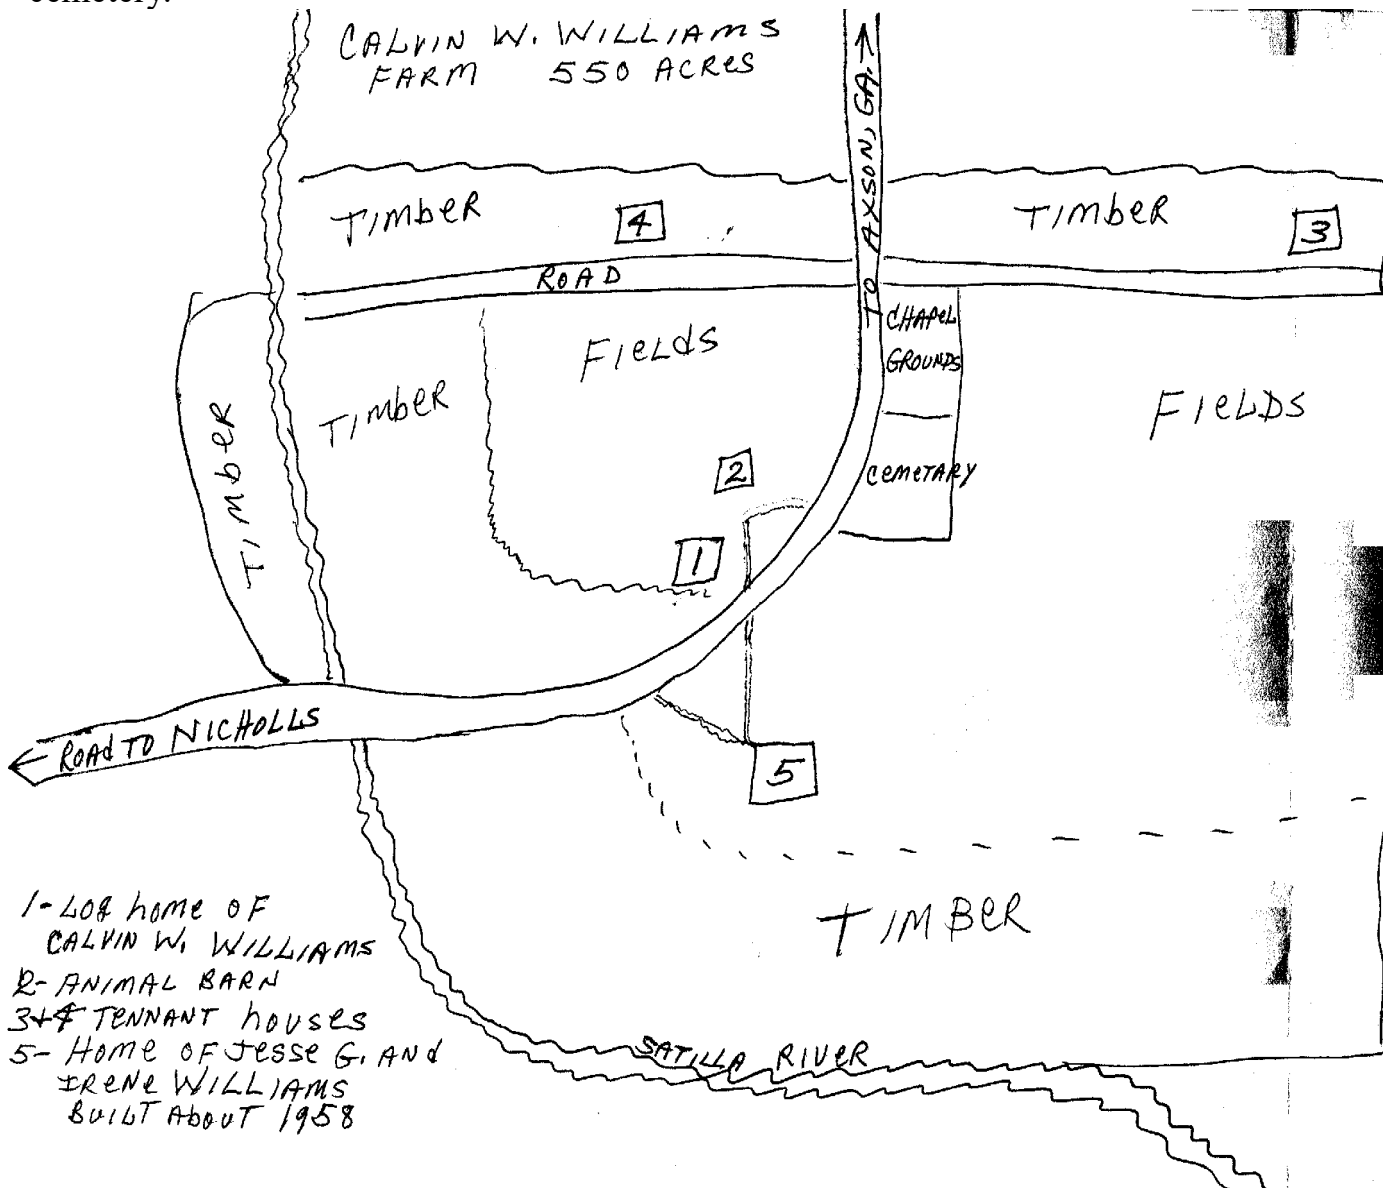 cemetery.
CALVIN W. WILLIAMS
FARM 550 ACRES
TO AXSON, GA.
TIMBER
4
TIMBER
3
ROAD
CHAPEL
GROUNDS
FIELDS
TIMBER
TIMBER
FIELDS
2
CEMETARY
1
ROAD TO NICHOLLS
5
TIMBER
1- LOG home OF
CALVIN W. WILLIAMS
2- ANIMAL BARN
3+4 TENNANT houses
5- Home OF Jesse G. ANd
IRENE WILLIAMS
BUILT ABOUT 1958
SATILLA RIVER